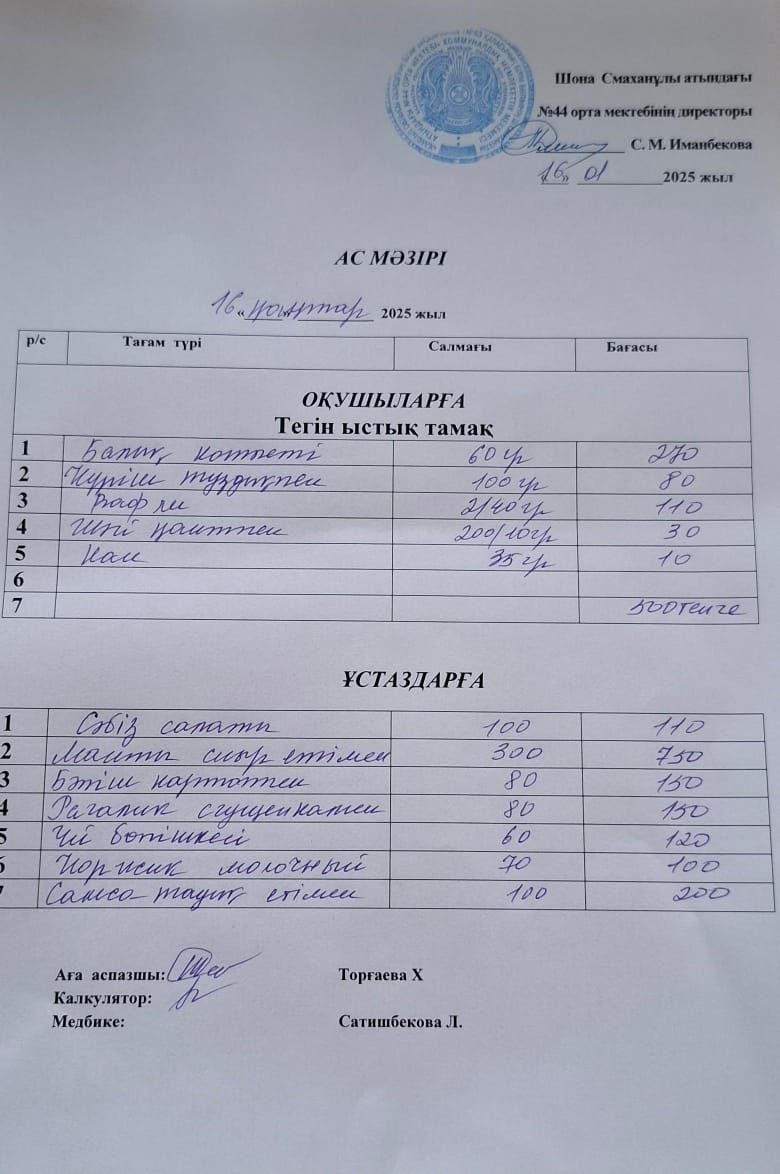 Шона Смаханұлы атындағы
№44 орта мектебінің директоры
С. М. Иманбекова
«16» 01 2025 жыл
АС МӘЗІРІ
16 «қаңтар» 2025 жыл
р/с Тағам түрі Салмағы Бағасы
ОҚУШЫЛАРҒА
Тегін ыстық тамақ
1 Балық котлеті 60 гр 270
2 Күріш тұздықпен 100 гр 80
3 Вафли 2/40 гр 110
4 Шәй қантпен 200/10 гр 30
5 Нан 35 гр 10
6
7 500 тенге
ҰСТАЗДАРҒА
1 Сәбіз салаты 100 110
2 Манты сиыр етімен 300 750
3 Бәтіш картоппен 80 150
4 Рагалик сгущенкамен 80 150
5 Үй бәтішкесі 60 120
6 Коржик молочный 70 100
7 Самса тауық етімен 100 200
Аға аспазшы: Торғаева Х
Калкулятор:
Медбике: Сатишбекова Л.